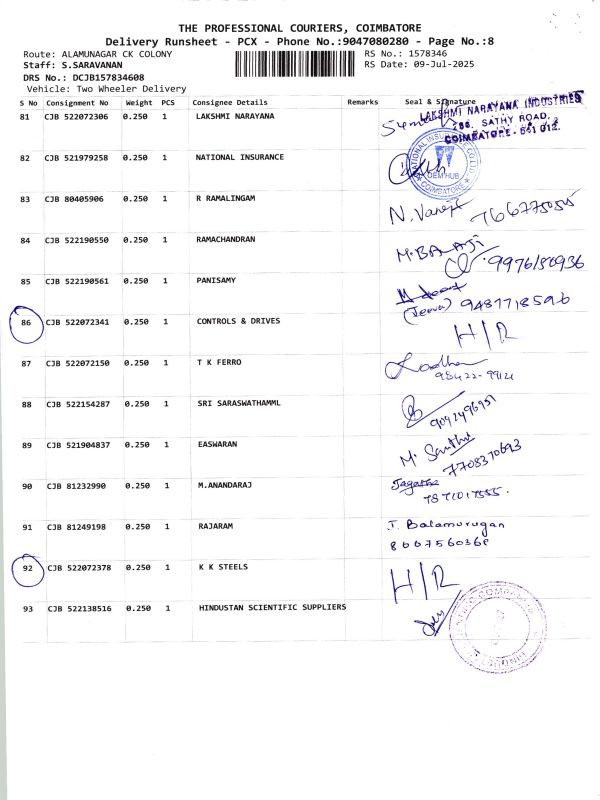 THE PROFESSIONAL COURIERS, COIMBATORE
Delivery Runsheet - PCX - Phone No.:9047080280 - Page No.:8
Route: ALAMUNAGAR CK COLONY
RS No.: 1578346
Staff: S.SARAVANAN
RS Date: 09-Jul-2025
DRS No.: DCJB157834608
Vehicle: Two Wheeler Delivery
S No Consignment No Weight PCS Consignee Details Remarks Seal & Signature
81 CJB 522072306 0.250 1 LAKSHMI NARAYANA
LAKSHMI NARAYANA INDUSTRIES
286, SATHY ROAD,
COIMBATORE - 641 012.
82 CJB 521979258 0.250 1 NATIONAL INSURANCE
NATIONAL INSURANCE CO LTD
COIMBATORE
83 CJB 80405906 0.250 1 R RAMALINGAM
N.
84 CJB 522190550 0.250 1 RAMACHANDRAN
M. BALAJI
9976150936
85 CJB 522190561 0.250 1 PANISAMY
(Jeeva)
86 CJB 522072341 0.250 1 CONTROLS & DRIVES H/R
87 CJB 522072150 0.250 1 T K FERRO
98422-99121
88 CJB 522154287 0.250 1 SRI SARASWATHAMML
9092496951
89 CJB 521904837 0.250 1 EASWARAN M. Santhu
7708370693
90 CJB 81232990 0.250 1 M.ANANDARAJ
91 CJB 81249198 0.250 1 RAJARAM J. Balamurugan
8007560368
92 CJB 522072378 0.250 1 K K STEELS H/R
93 CJB 522138516 0.250 1 HINDUSTAN SCIENTIFIC SUPPLIERS